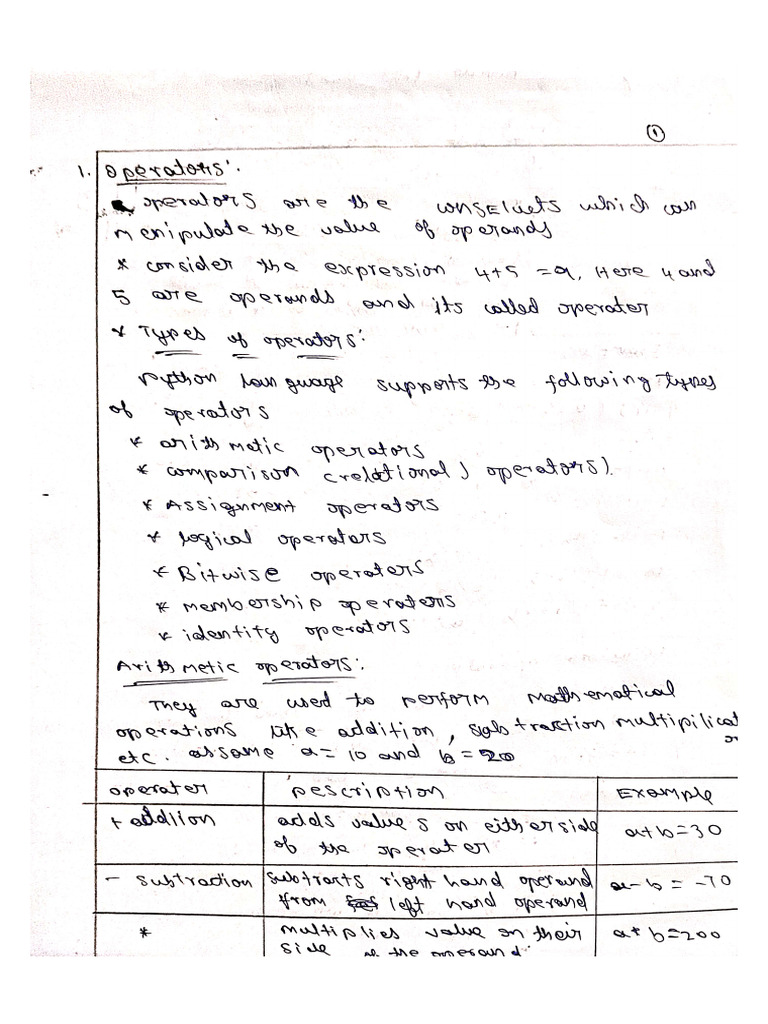 ①
1. Operators:
operators are the which can
manipulate the value of operands
* consider the expression 4+5 = 9, Here 4 and
5 are operands and its called operator
* Types of operators:
python language supports the following types
of operators
* arithmetic operators
* comparison (relational) operators).
* Assignment operators
* logical operators
* Bitwise operators
* membership operators
* identity operators
Arithmetic operators:
They are used to perform mathematical
operations like addition, subtraction multiplicat
etc. assame a = 10 and b = 20
operater Description Example
+ addition adds value s on either side a+b=30
of the operater
- subtraction subtracts right hand operand a-b = -10
from left hand operand
* multiplies value on their a* b=200
side of the operand